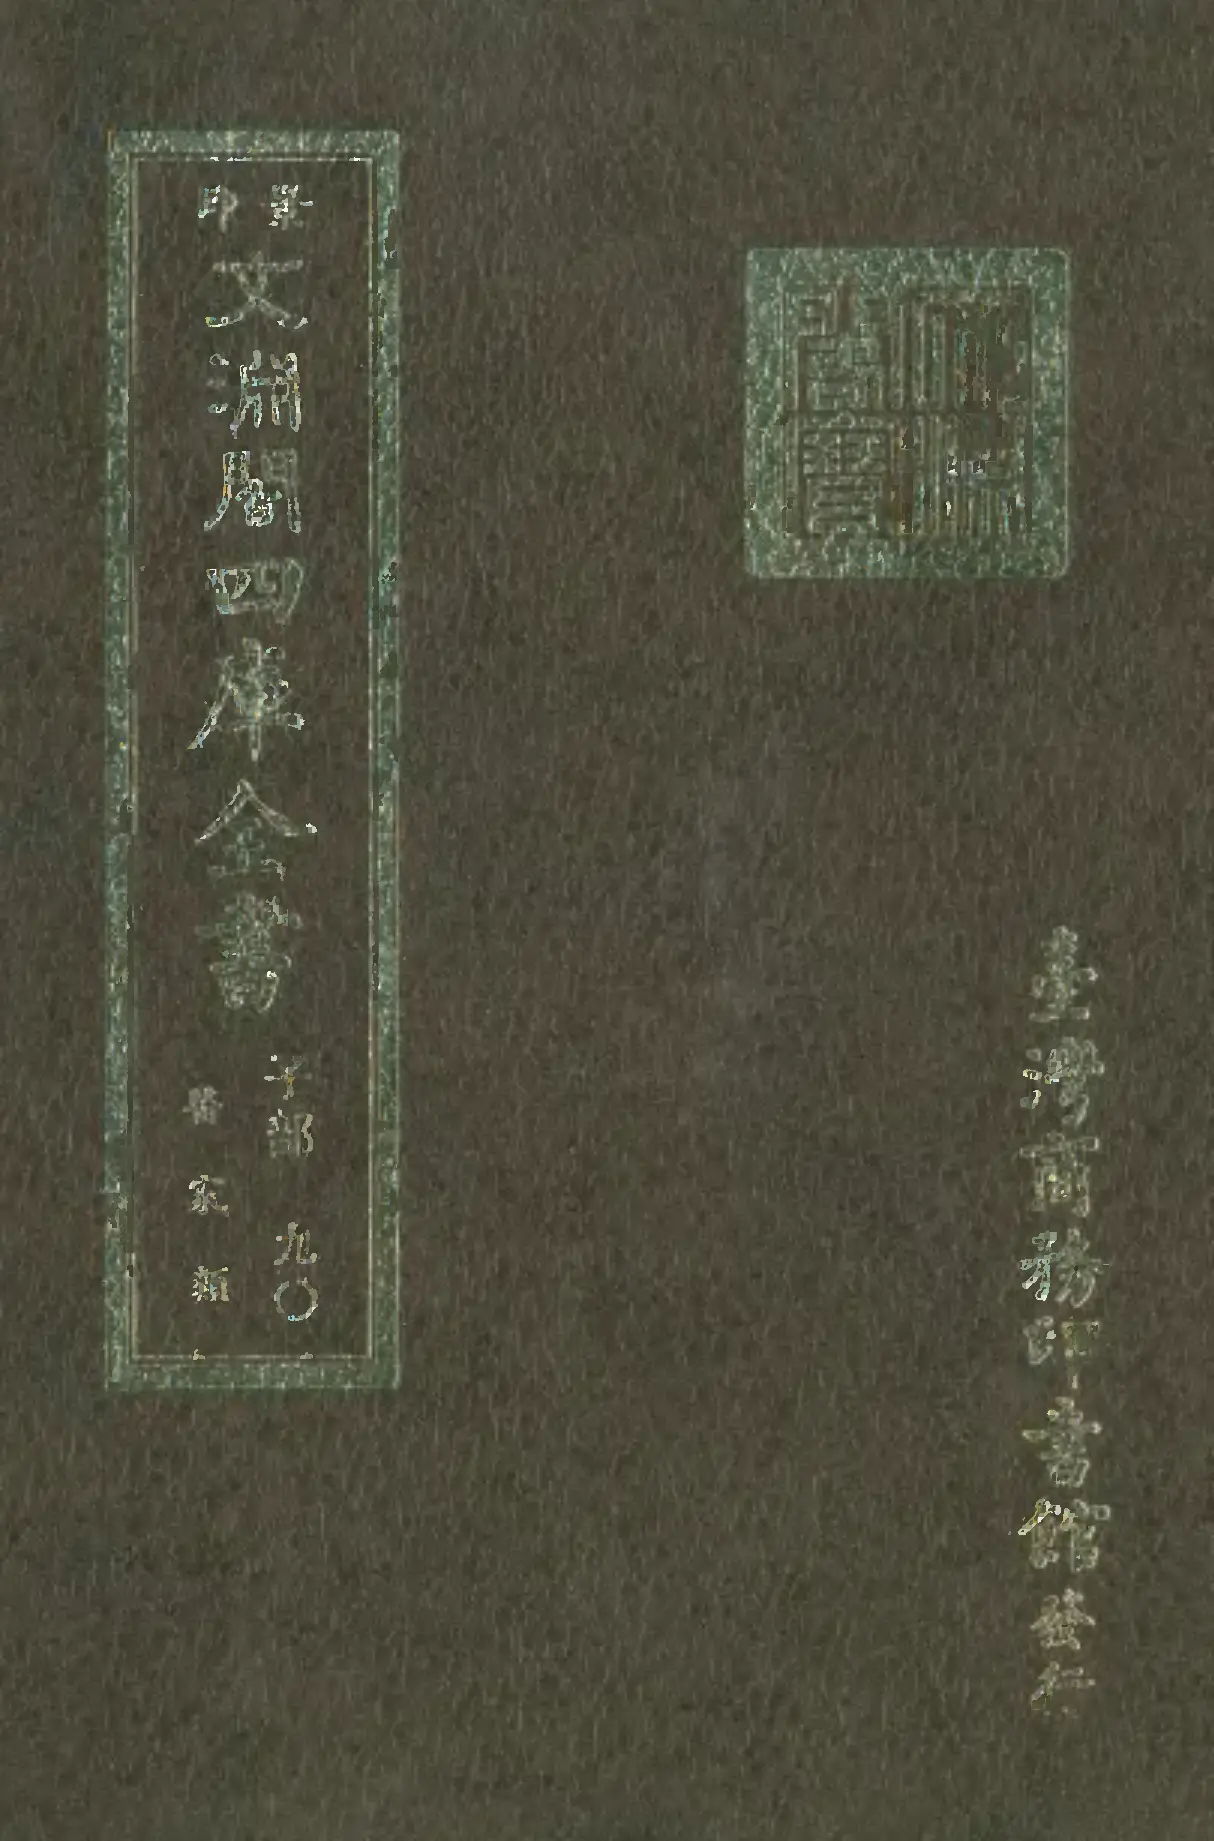 臺灣商務印書館發行
文淵閣寶
景印
文淵閣四庫全書
子部 九〇
醫家類